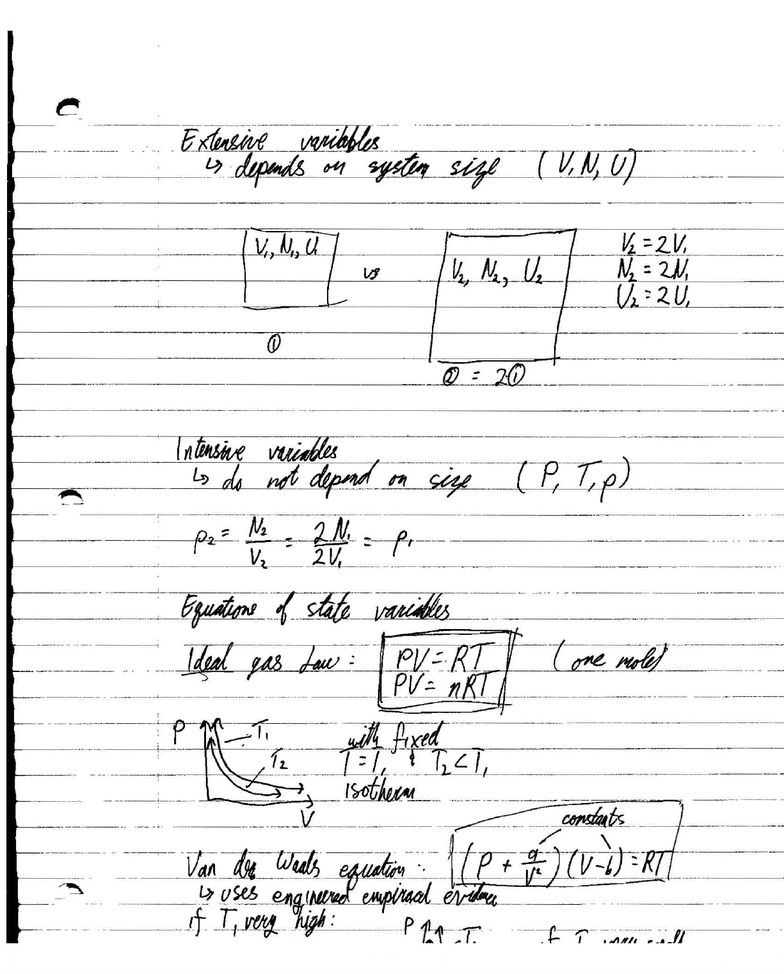 Extensive variables
↳ depends on system size (V, N, U)
V₁, N₁, U₁
vs
V₂, N₂, U₂
V₂ = 2V₁
N₂ = 2N₁
U₂ = 2U₁
①
② = 2①
Intensive variables
↳ do not depend on size (P, T, ρ)
ρ₂ = N₂/V₂ = 2N₁/2V₁ = ρ₁
Equations of state variables
Ideal gas Law: PV = RT (one mole)
PV = nRT
P T₁ with fixed
T₂ T = T₁ & T₂ < T₁
isotherm
V
constants
Van der Waals equation: (P + a/V²)(V-b) = RT
↳ uses engineered empirical evidence
if T, very high: P